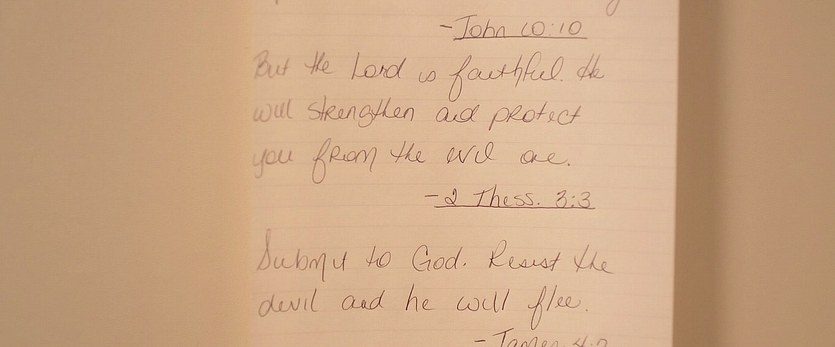 - John 10:10
But the Lord is faithful. He
will strengthen and protect
you from the evil one.
- 2 Thess. 3:3
Submit to God. Resist the
devil and he will flee.
- James 4:7